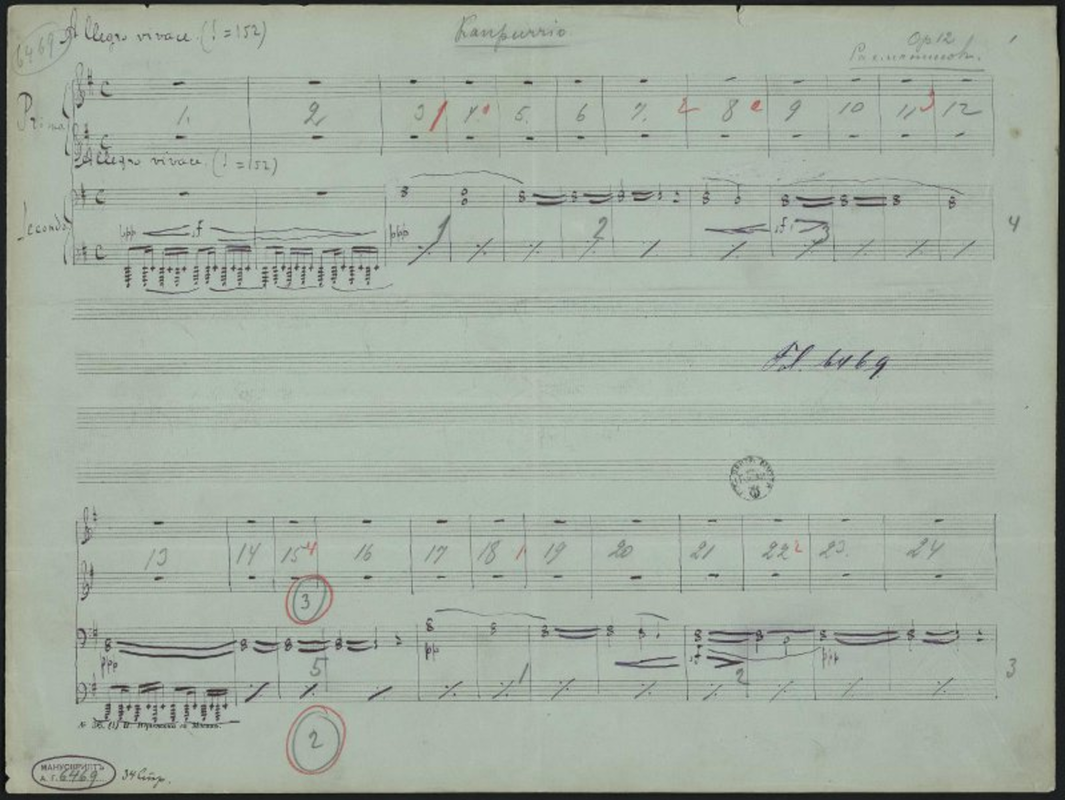 6469 Allegro vivace. (♩=152) Каприччіо
Op 12
Рахманинов.
Prima
1. 2. 3 1 4. 5. 6 7. 2 8 9 10 11 3 12
Allegro vivace. (♩=152)
Secondo
pp f ppp f
1 2 3 4
Гл. 6469
13 14 15 4 16 17 18 1 19 20 21 22 2 23. 24
3
ppp pp ppp
5 1 2 3
2
МАНУСКРИПТЪ
А. Г. 6469 34 Стр.